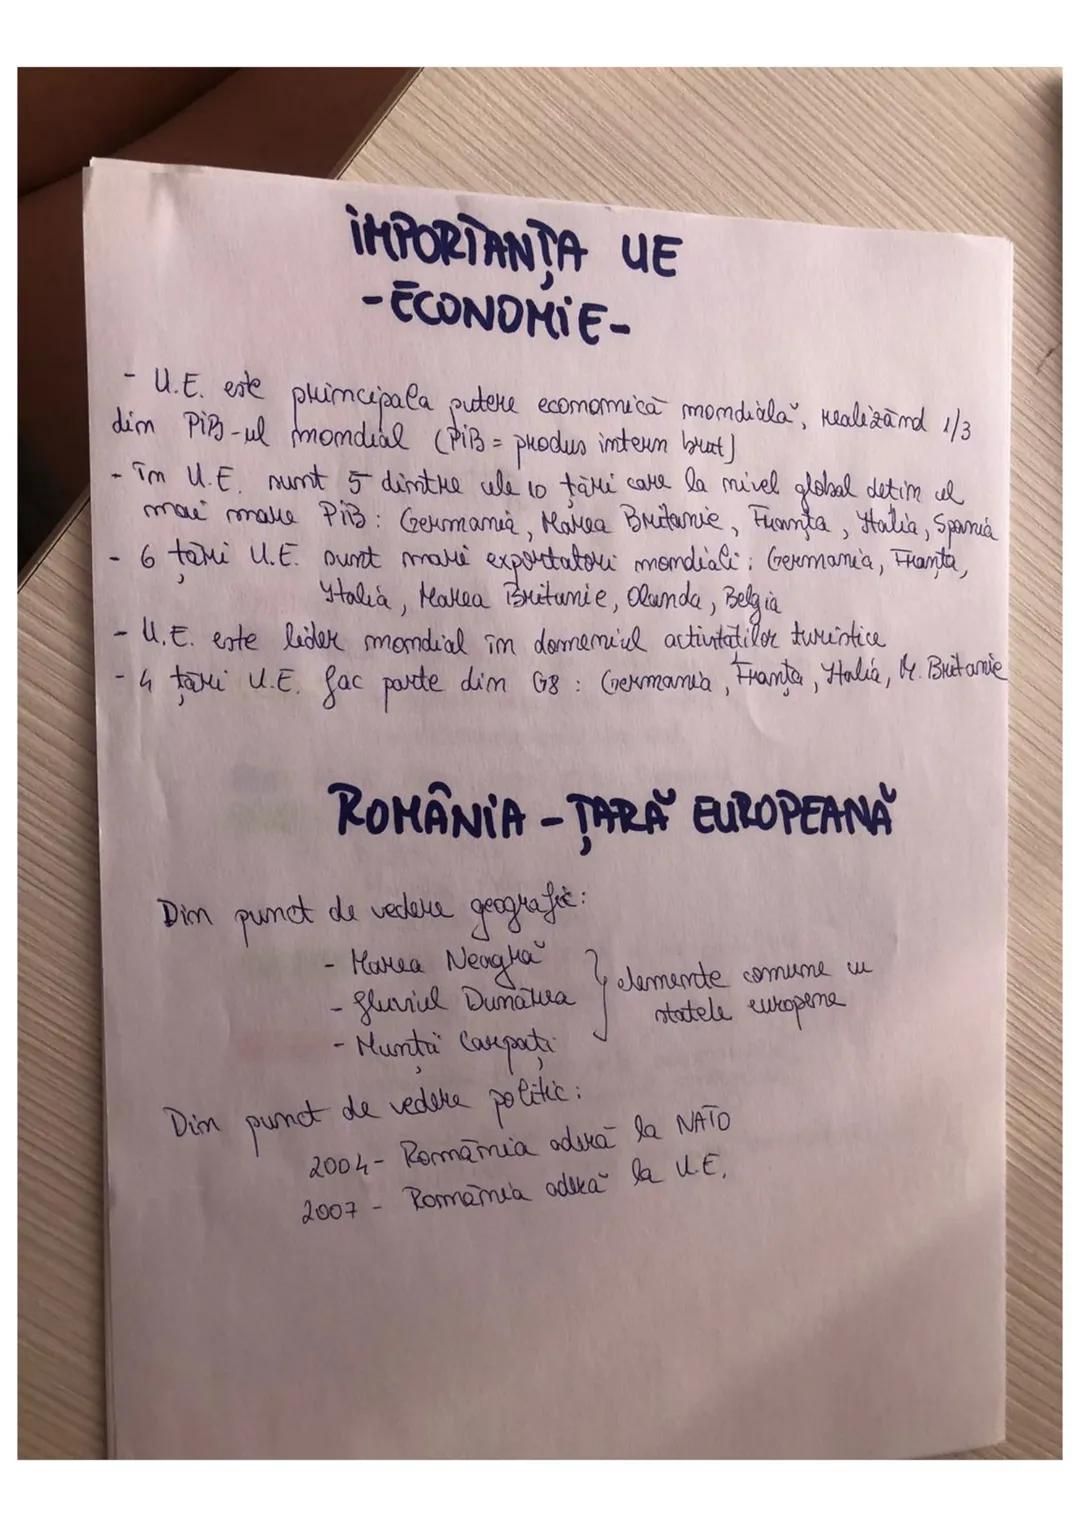 IMPORTANȚA UE
-ECONOMIE-
- U.E. este principala putere economică mondială, realizând 1/3
din PiB-ul mondial (PiB = produs intern brut)
- În U.E. sunt 5 dintre cele 10 țări care la nivel global dețin cel
mai mare PiB: Germania, Marea Britanie, Franța, Italia, Spania
- 6 țări U.E. sunt mari exportatori mondiali: Germania, Franța,
Italia, Marea Britanie, Olanda, Belgia
- U.E. este lider mondial în domeniul activităților turistice
- 4 țări U.E. fac parte din G8: Germania, Franța, Italia, M. Britanie
ROMÂNIA - ȚARĂ EUROPEANĂ
Din punct de vedere geografic:
- Marea Neagră
- fluviul Dunărea } elemente comune cu
statele europene
- Munții Carpați
Din punct de vedere politic:
2004 - România aderă la NATO
2007 - România aderă la U.E.